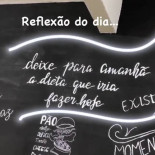 Reflexão do dia...
deixe para amanhã
a dieta que iria
fazer hoje
EXIS
PÃO
MOMEN